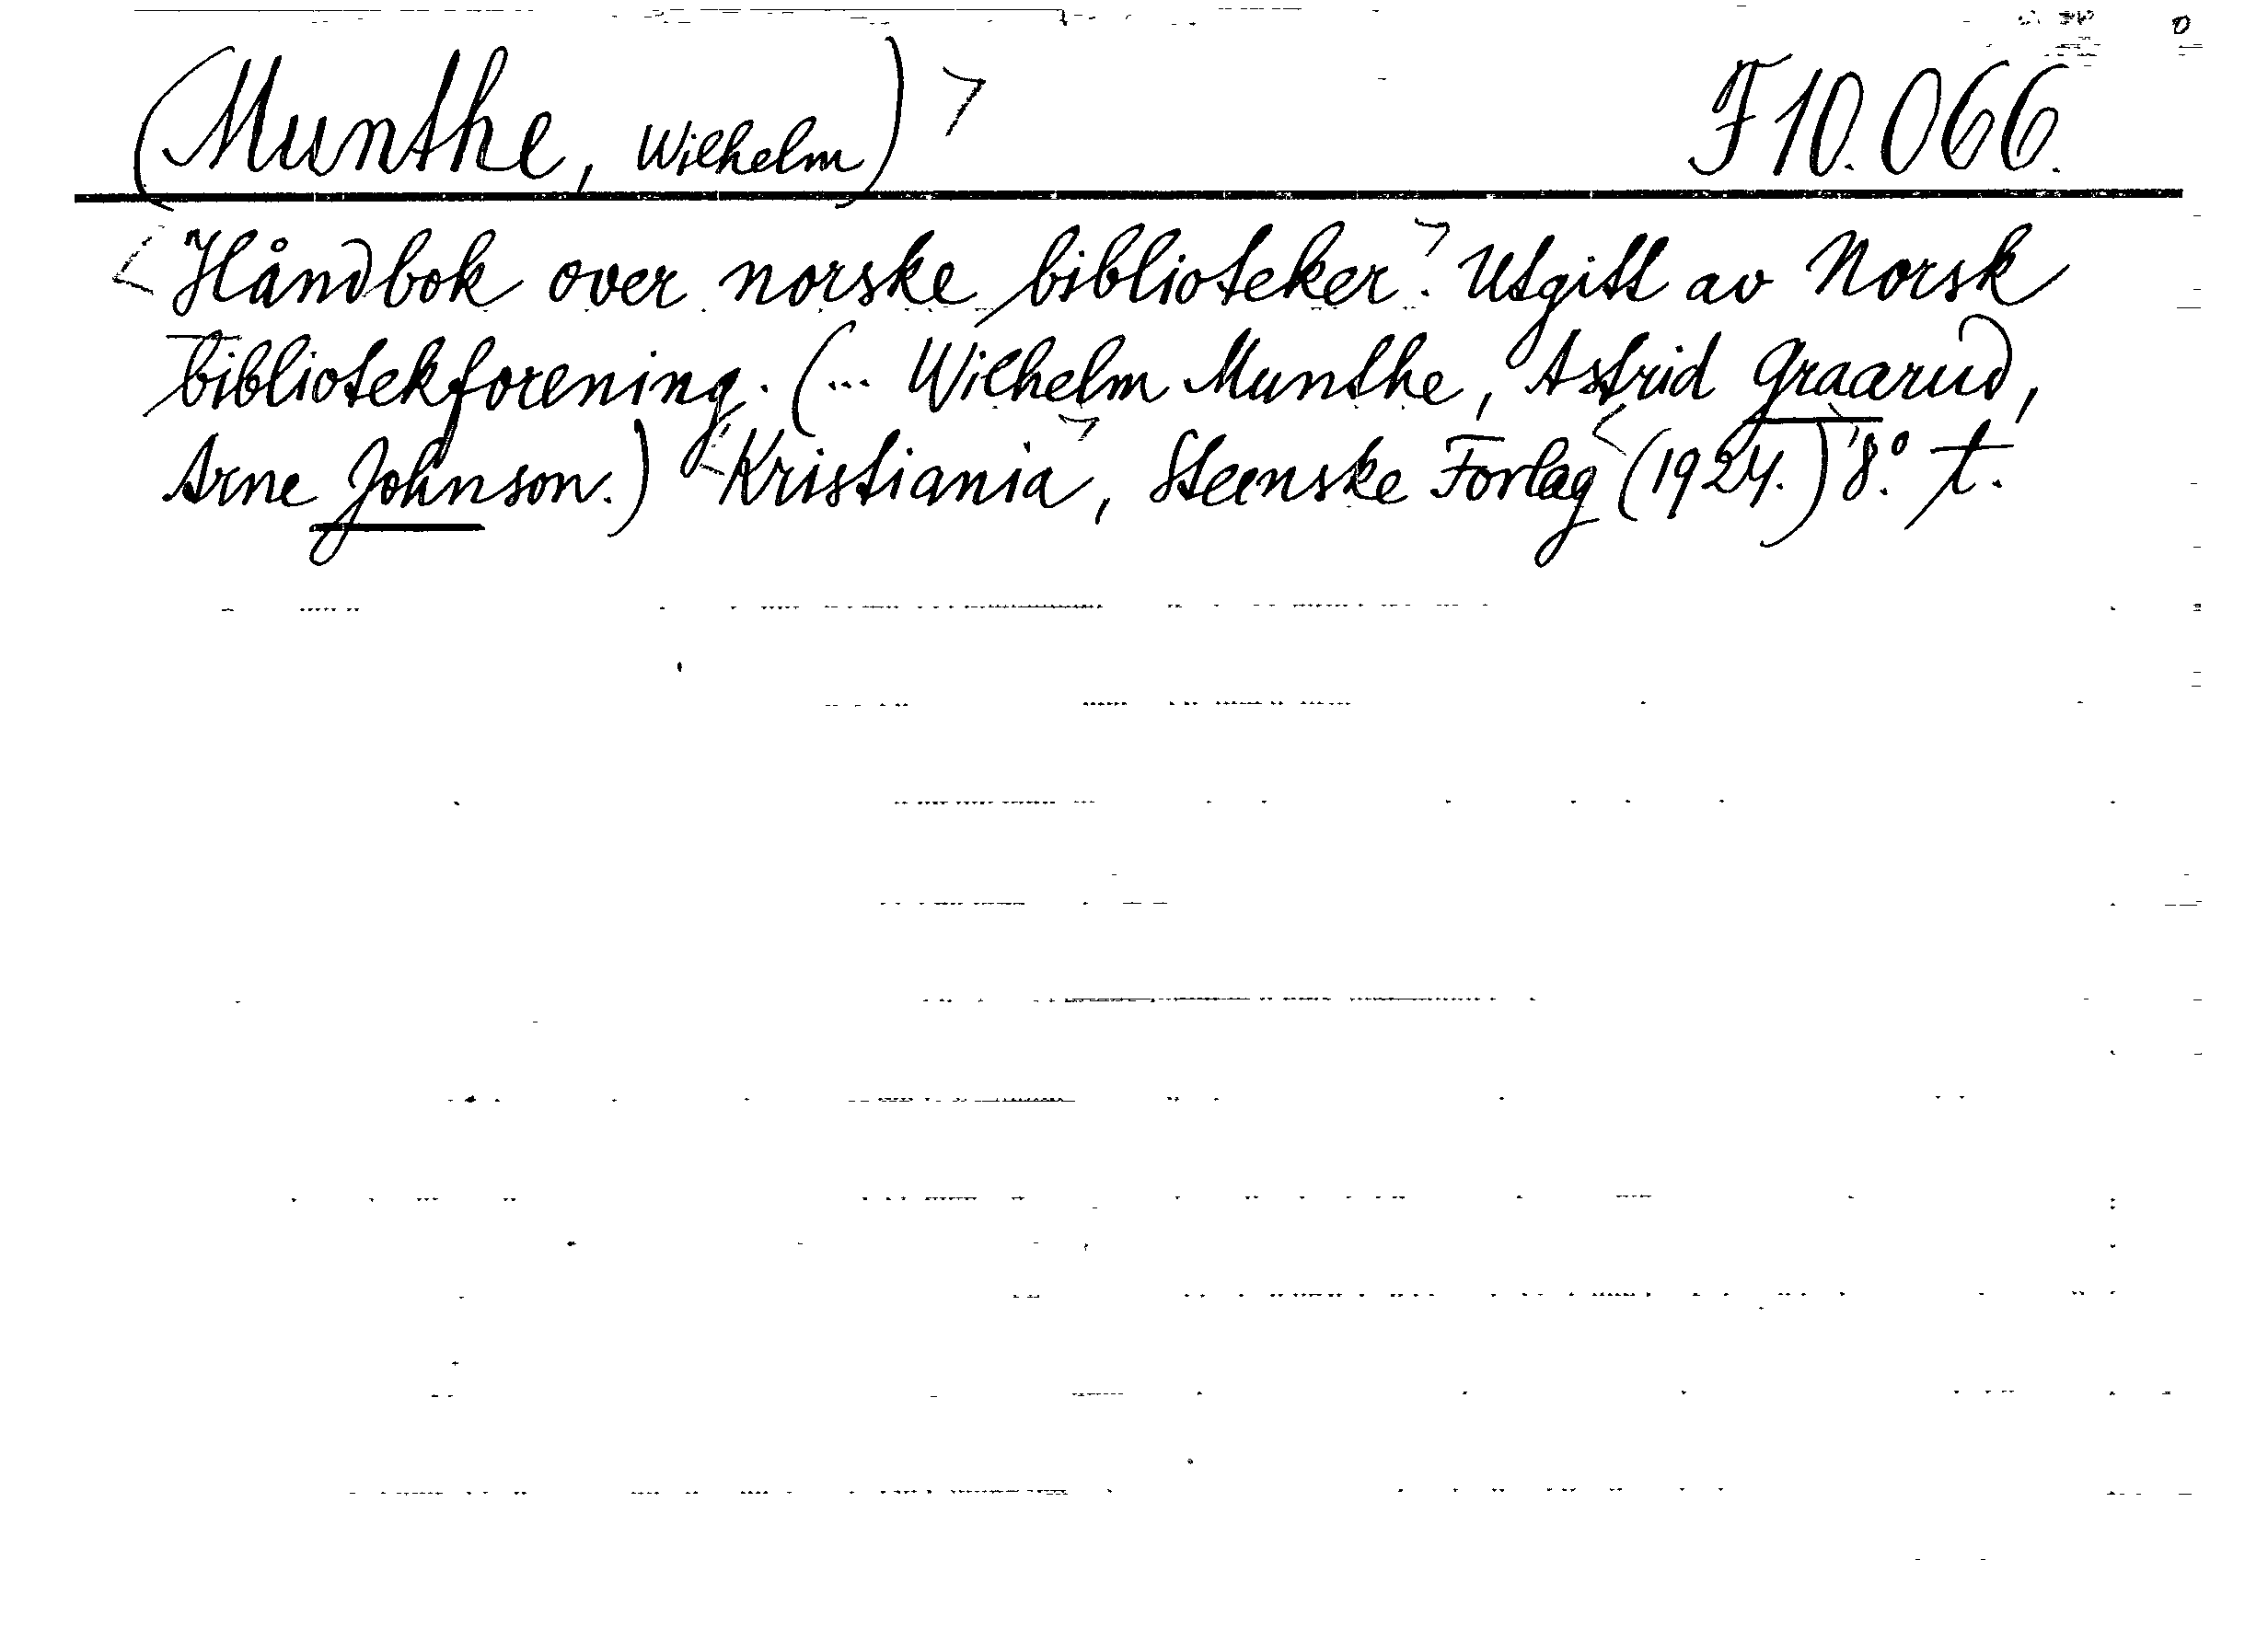 (Munthe, Wilhelm) F 10.066.
Håndbok over norske biblioteker. Utgitt av Norsk
bibliotekforening. (... Wilhelm Munthe, Astrid Graarud,
Arne Johnson.) Kristiania, Steenske Forlag (1924.) 8.° t.